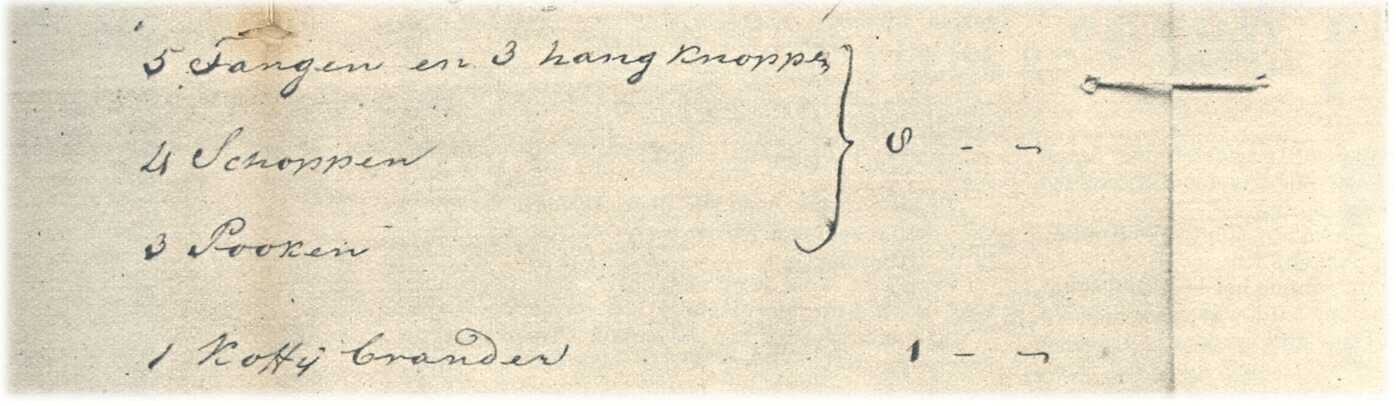 5 Tangen en 3 hang knoppen
4 Schoppen 8 - -
3 Pooken
1 Koffij brander 1 - -